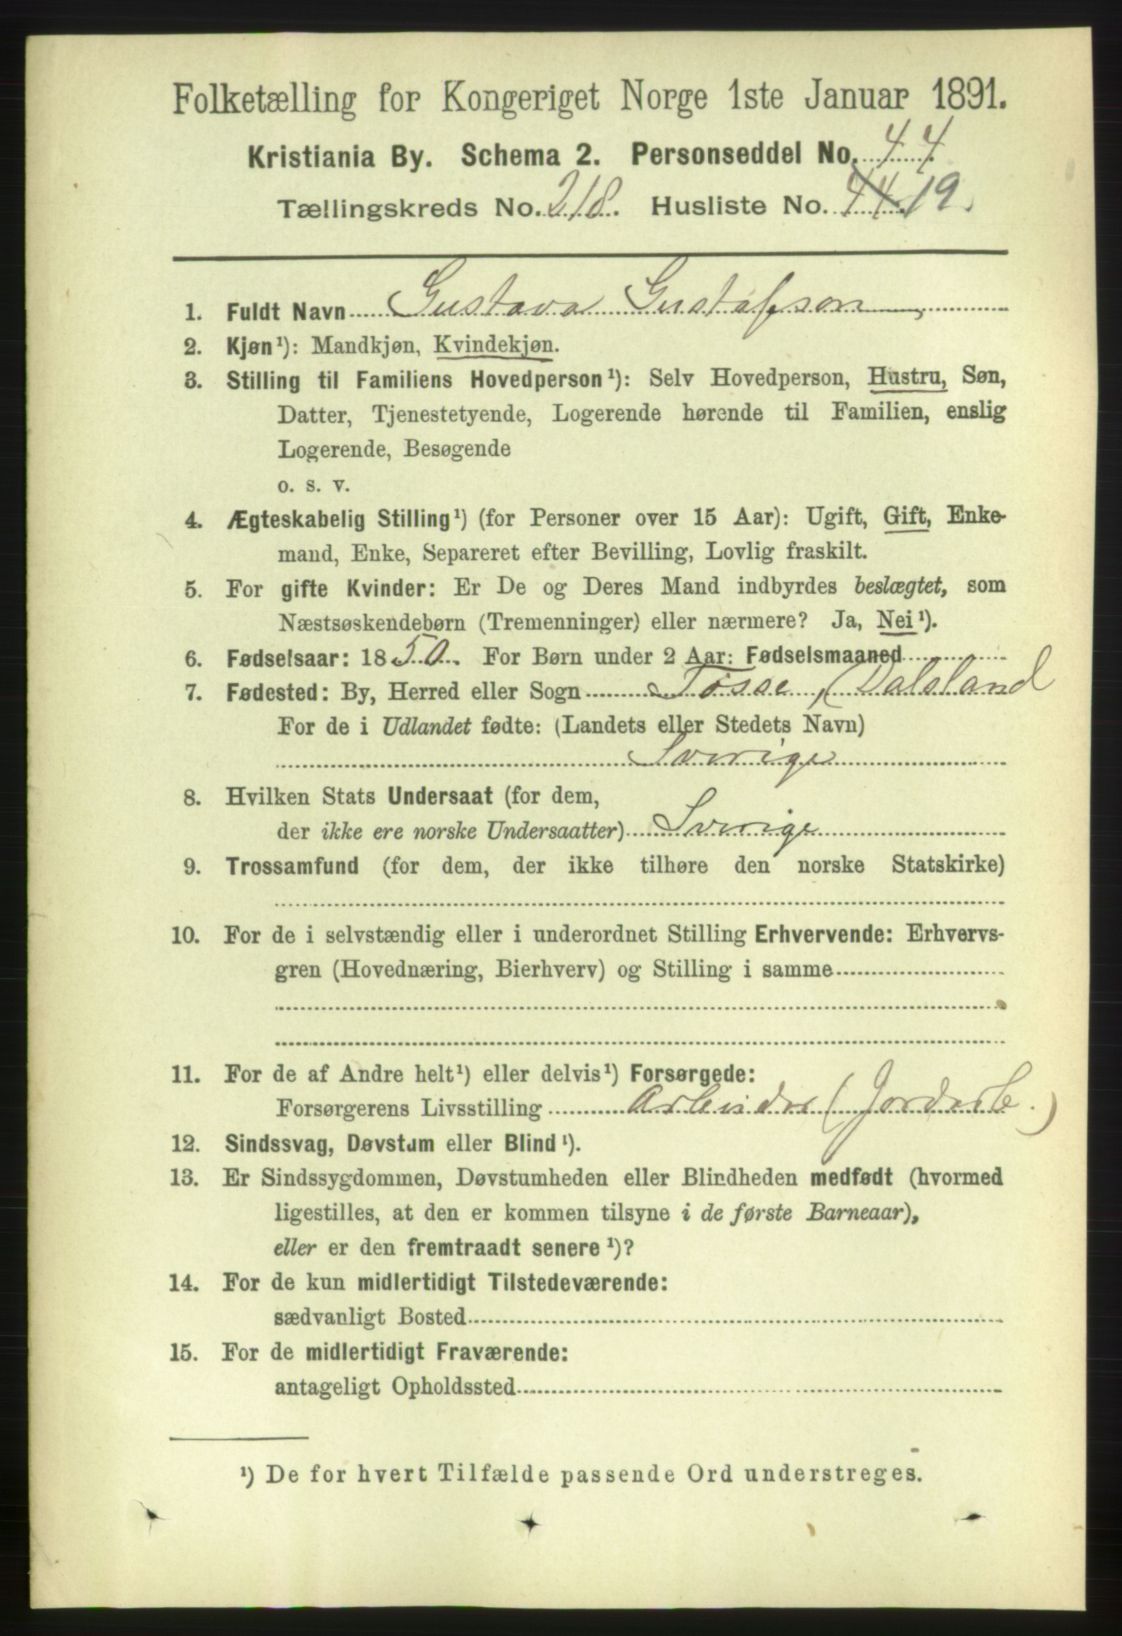 Folketælling for Kongeriget Norge 1ste Januar 1891.
Kristiania By. Schema 2. Personseddel No. 44
Tællingskreds No. 218. Husliste No. 44 19.
1. Fuldt Navn Gustava Gustafson
2. Kjøn¹): Mandkjøn, Kvindekjøn.
3. Stilling til Familiens Hovedperson¹): Selv Hovedperson, Hustru, Søn,
Datter, Tjenestetyende, Logerende hørende til Familien, enslig
Logerende, Besøgende
o. s. v.
4. Ægteskabelig Stilling¹) (for Personer over 15 Aar): Ugift, Gift, Enke-
mand, Enke, Separeret efter Bevilling, Lovlig fraskilt.
5. For gifte Kvinder: Er De og Deres Mand indbyrdes beslægtet, som
Næstsøskendebørn (Tremenninger) eller nærmere? Ja, Nei¹).
6. Fødselsaar: 1850. For Børn under 2 Aar: Fødselsmaaned
7. Fødested: By, Herred eller Sogn Tøsse, (Dalsland
For de i Udlandet fødte: (Landets eller Stedets Navn)
Sverige
8. Hvilken Stats Undersaat (for dem,
der ikke ere norske Undersaatter) Sverige
9. Trossamfund (for dem, der ikke tilhøre den norske Statskirke)
10. For de i selvstændig eller i underordnet Stilling Erhvervende: Erhvervs-
gren (Hovednæring, Bierhverv) og Stilling i samme
11. For de af Andre helt¹) eller delvis¹) Forsørgede:
Forsørgerens Livsstilling Arbeider (Jordarb.)
12. Sindssvag, Døvstum eller Blind¹).
13. Er Sindssygdommen, Døvstumheden eller Blindheden medfødt (hvormed
ligestilles, at den er kommen tilsyne i de første Barneaar),
eller er den fremtraadt senere¹)?
14. For de kun midlertidigt Tilstedeværende:
sædvanligt Bosted
15. For de midlertidigt Fraværende:
antageligt Opholdssted
¹) De for hvert Tilfælde passende Ord understreges.